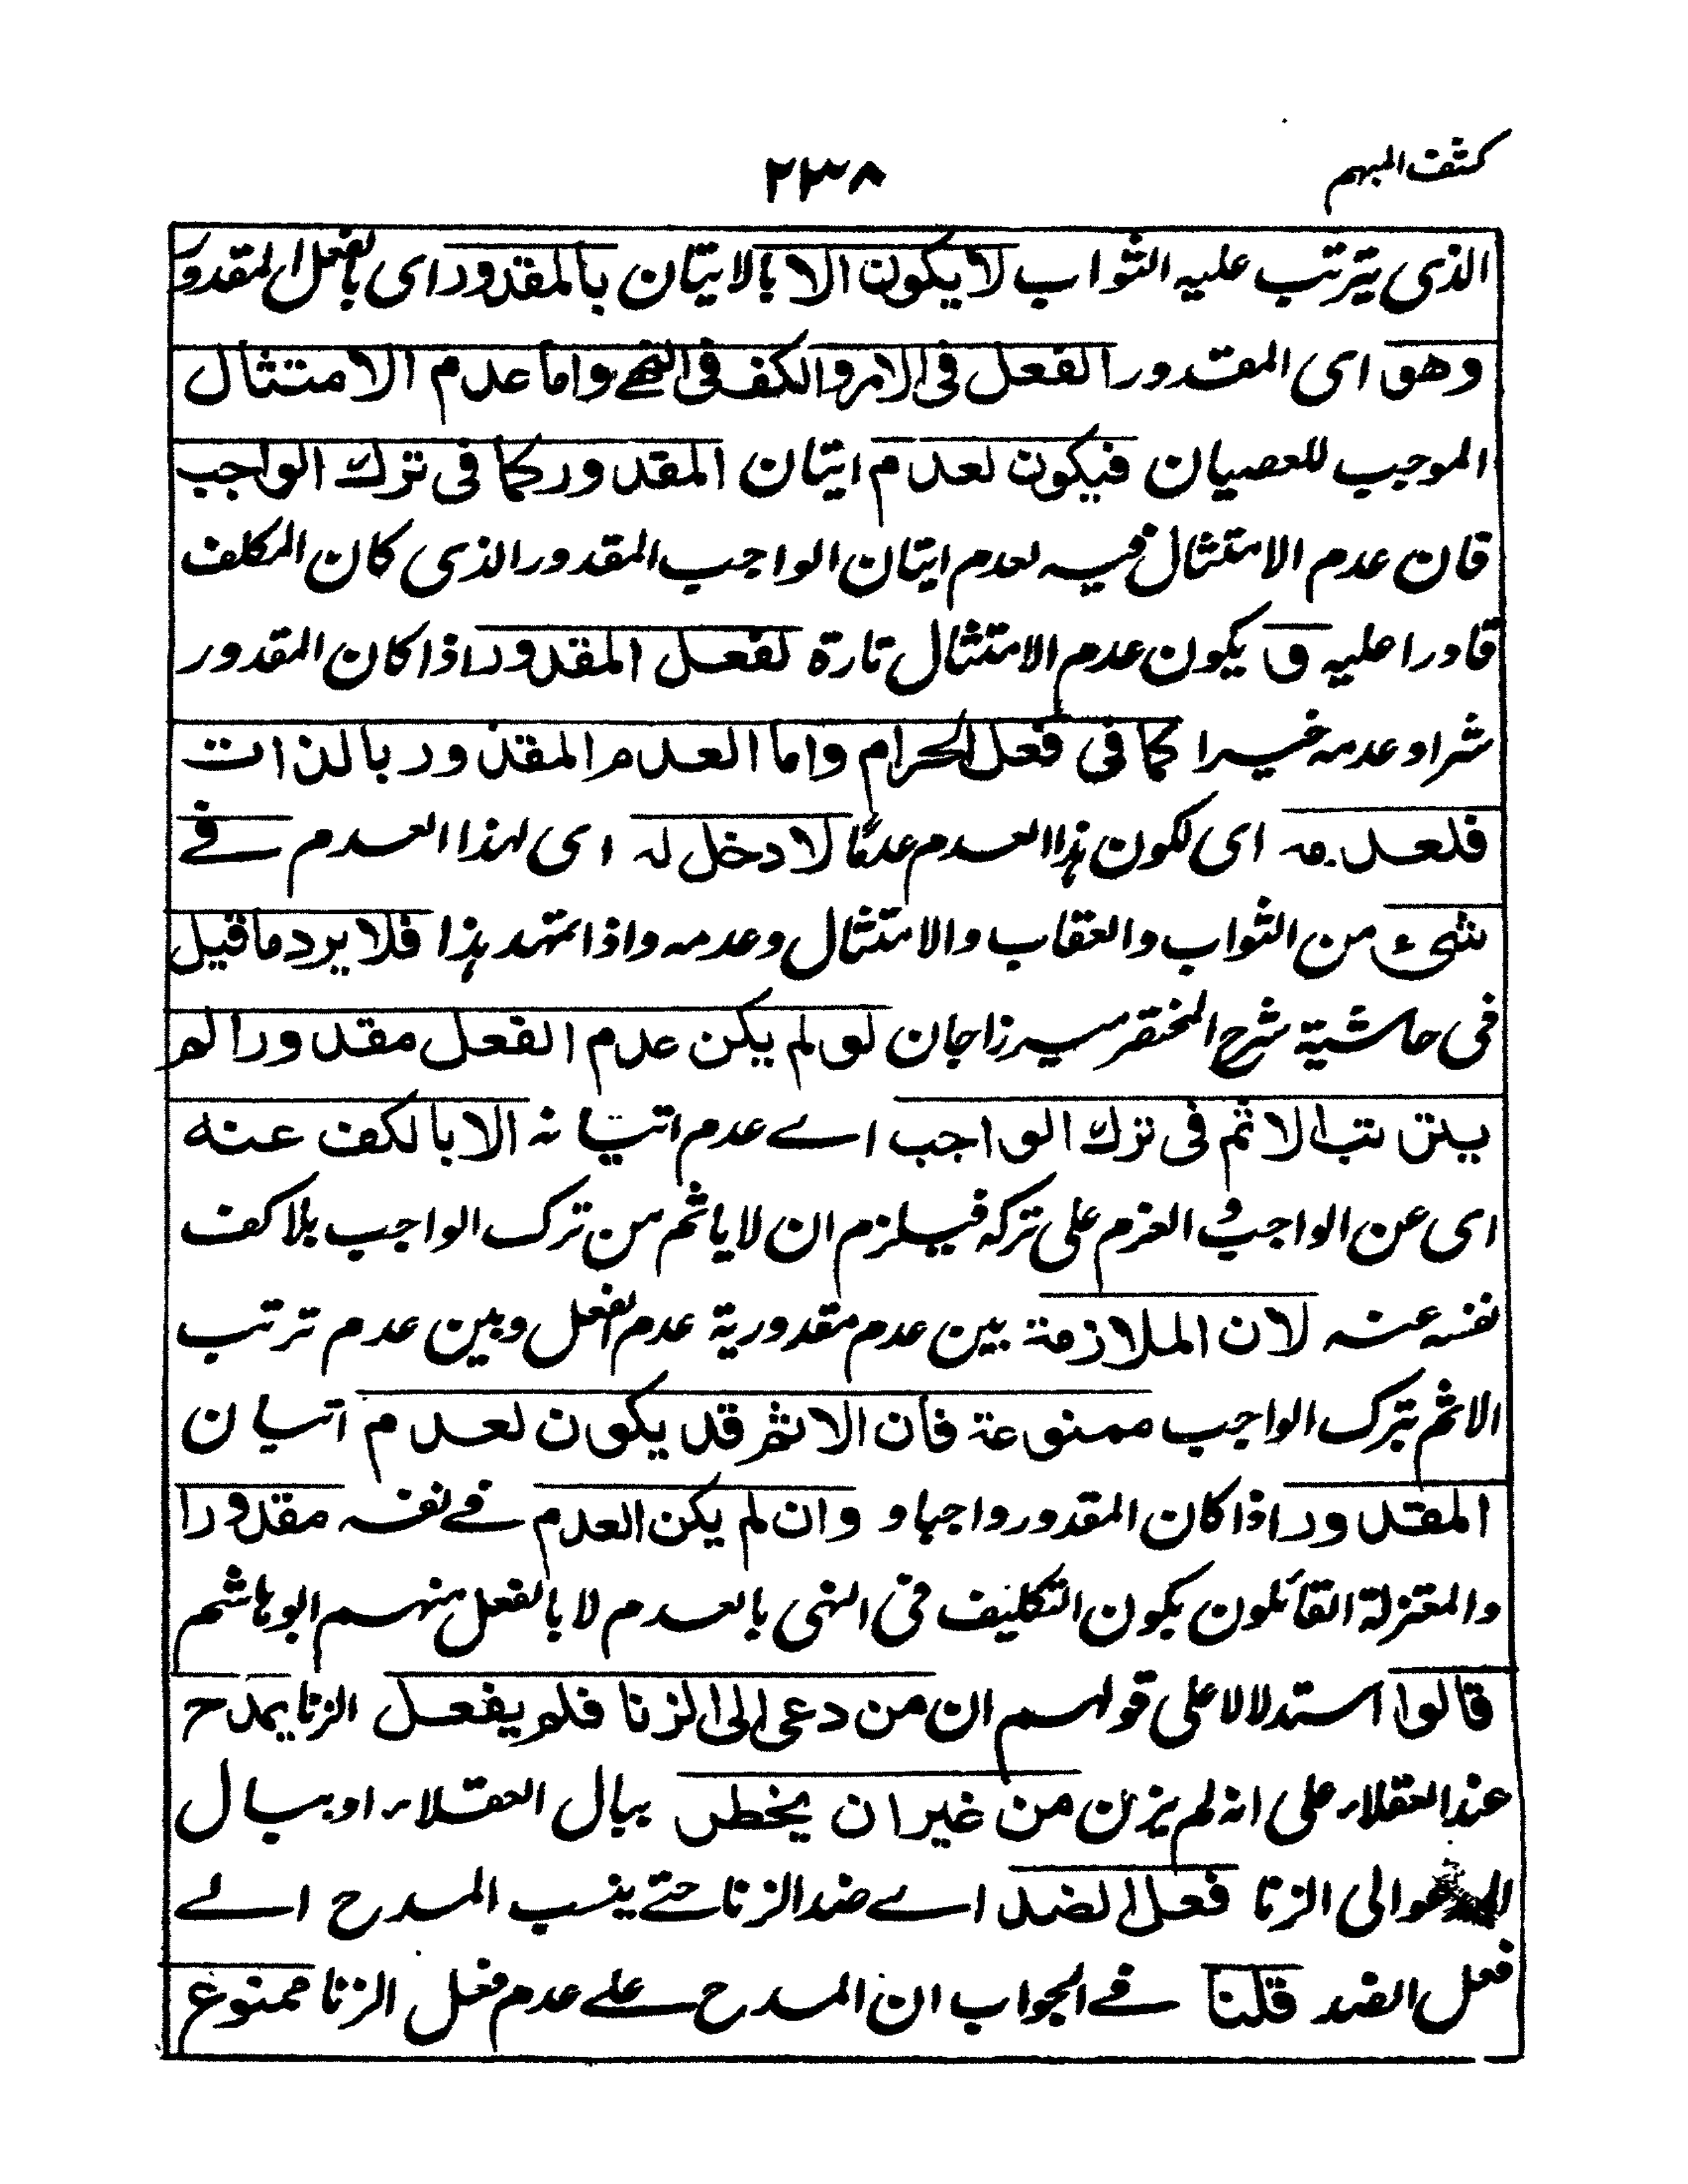 كشف المبهم
٢٣٨
الذى يترتب عليه الثواب لا يكون الا بالاتيان بالمقدور اى بالفعل المقدور
وهو اى المقدور الفعل فى الامر والكف فى النهے واما عدم الامتثال
الموجب للعصيان فيكون لعدم اتيان المقدور كما فى ترك الواجب
فان عدم الامتثال فيه لعدم اتيان الواجب المقدور الذى كان المكلف
قادرا عليه و يكون عدم الامتثال تارة لفعل المقدور اذا كان المقدور
شرا وعدمه خيرا كما فى فعل الحرام واما العدم المقدور بالذات
فلعدمه اى لكون هذا العدم عدمًا لا دخل له اى لهذا العدم فے
شىء من الثواب والعقاب والامتثال وعدمه واذا تمهد هذا فلا يرد ما قيل
فى حاشية شرح المختصر ميرزاجان لو لم يكن عدم الفعل مقدورا لم
يترتب الاثم فى ترك الواجب اے عدم اتيانه الا بالكف عنه
اى عن الواجب و العزم على تركه فيلزم ان لا ياثم من ترك الواجب بلا كف
نفسه عنه لان الملازمة بين عدم مقدورية عدم الفعل وبين عدم ترتب
الاثم بترك الواجب ممنوعة فان الاثم قد يكون لعدم اتيان
المقدور اذا كان المقدور واجبا و وان لم يكن العدم فے نفسه مقدورا
والمعتزلة القائلون بكون التكليف فى النهى بالعدم لا بالفعل منهم ابو هاشم
قالوا استدلالا على قولهم ان من دعى الى الزنا فلم يفعل الزنا يمدح
عند العقلاء على انه لم يزن من غير ان يخطر ببال العقلاء او ببال
المدعو الى الزنا فعل الضد اے ضد الزنا حتے ينسب المدح الے
فعل الضد قلنا فے الجواب ان المدح علے عدم فعل الزنا ممنوع